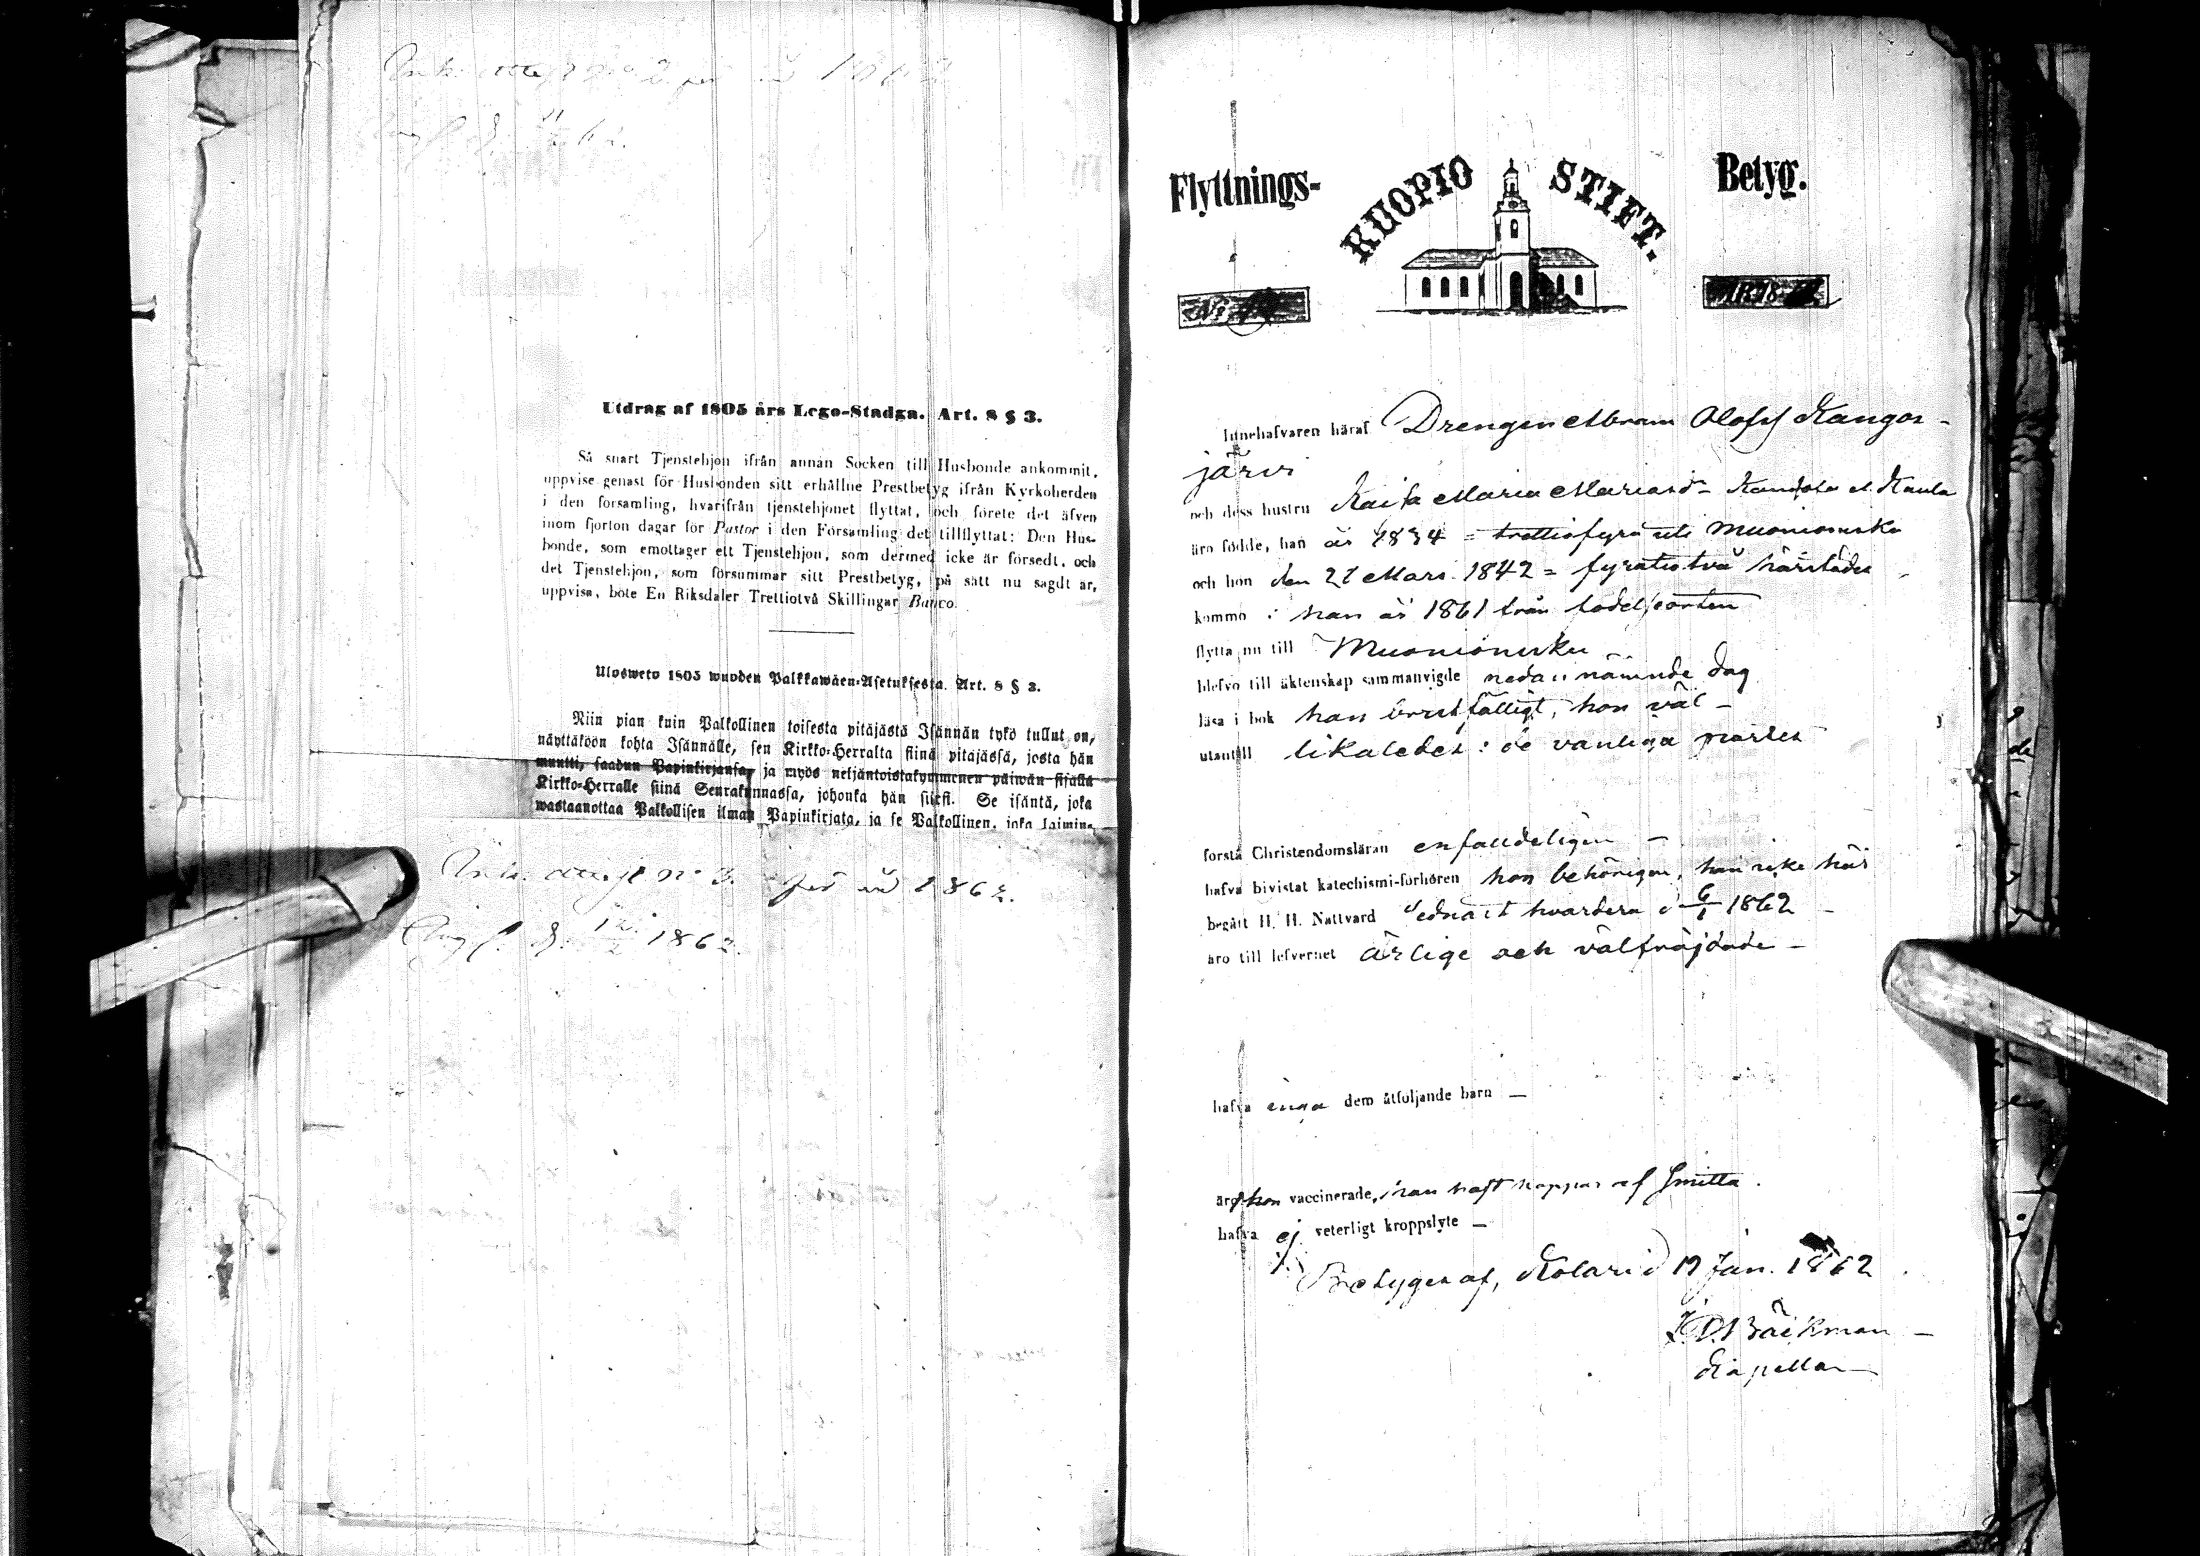 Utdrag af 1805 års Lego-Stadga. Art. 8 § 3.
Så snart Tjenstehjon ifrån annan Socken till Husbonde ankommit,
uppvise genast för Husbonden sitt erhållne Prestbetyg ifrån Kyrkoherden
i den forsamling, hvarifrån tjenstehjonet flyttat, och förete det äfven
inom fjorton dagar för Pastor i den Församling det tillflyttat: Den Hus-
bonde, som emottager ett Tjenstehjon, som dermed icke är försedt, och
det Tjenstehjon, som försummar sitt Prestbetyg, på sätt nu sagdt är,
uppvisa, böte En Riksdaler Trettiotvå Skillingar Banco.
Ulosweto 1805 wuoden Palkkawäen-Asetuksesta. Art. 8 § 3.
Niin pian kuin Palkollinen toisesta pitäjästä Isännän tykö tullut on,
näyttäköön kohta Isännälle, sen Kirkko-Herralta siinä pitäjässä, josta hän
muutti, saadun Papinkirjansa, ja myös neljäntoistakymmenen päiwän sisällä
Kirkko-Herralle siinä Seurakunnassa, johonka hän siirsi. Se isäntä, joka
wastaanottaa Palkollisen ilman Papinkirjata, ja se Palkollinen, joka laimin-
n:o 3. 1862.
1862.
Flyttnings- KUOPIO STIFT. Betyg.
N:o
Innehafvaren häraf Drengen Abram Olofss Kangos-
järvi
och dess hustru Kaisa Maria Mariasdr
äro födde, han år 1834 = trettiofyra uti Muonioniska
och hon den 21 Mars 1842 = fyratiotvå härstädes
kommo : han år 1861 från födelseorten
flytta nu till Muonioniska
blefvo till äktenskap sammanvigde nedannämnde dag
läsa i bok han försvarligt, hon väl –
utantill likaledes: de vanliga
förstå Christendomsläran enfaldeligen –
hafva bivistat katechismi-förhören hon behörigen, han icke här
begått H. H. Nattvard sednast hvardera d 6/1 1862 –
äro till lefvernet ärlige och välfräjdade –
hafva inga dem åtföljande barn –
äro hon vaccinerade, han haft koppor af smitta.
hafva ej veterligt kroppslyte –
Betygas af, Kolari d 19 Jan. 1862
Bäckman –
Kapellan